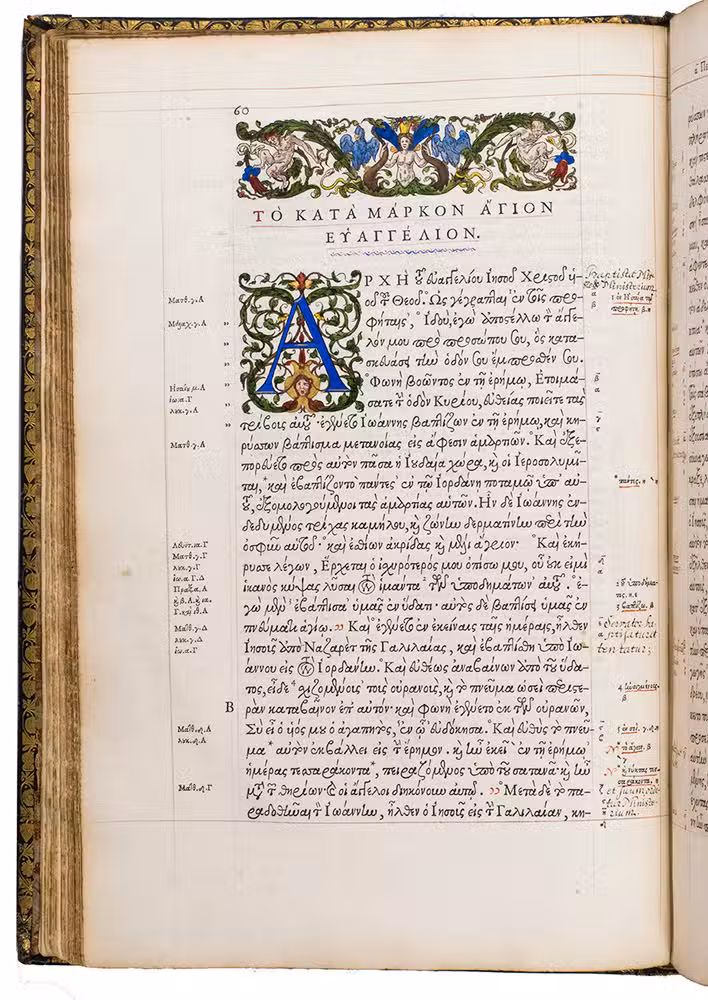 60
ΤΟ ΚΑΤΑ ΜΑΡΚΟΝ ἍΓΙΟΝ
ΕΥΑΓΓΕΛΙΟΝ.
ΑΡΧΗ τοῦ εὐαγγελίου Ἰησοῦ Χριστοῦ υἱ-
οῦ τοῦ Θεοῦ. Ὡς γέγραπται ἐν τοῖς προ-
φήταις, Ἰδού, ἐγὼ ἀποστέλλω τὸν ἄγγε-
λόν μου πρὸ προσώπου σου, ὃς κατα-
σκευάσει τὴν ὁδόν σου ἔμπροσθέν σου.
Φωνὴ βοῶντος ἐν τῇ ἐρήμῳ, Ἑτοιμά-
σατε τὴν ὁδὸν Κυρίου, εὐθείας ποιεῖτε τὰς
τρίβους αὐτοῦ· ἐγένετο Ἰωάννης βαπτίζων ἐν τῇ ἐρήμῳ, καὶ κη-
ρύσσων βάπτισμα μετανοίας εἰς ἄφεσιν ἁμαρτιῶν. Καὶ ἐξε-
πορεύετο πρὸς αὐτὸν πᾶσα ἡ Ἰουδαία χώρα, καὶ οἱ Ἱεροσολυμῖ-
ται, καὶ ἐβαπτίζοντο πάντες ἐν τῷ Ἰορδάνῃ ποταμῷ ὑπ' αὐ-
τοῦ, ἐξομολογούμενοι τὰς ἁμαρτίας αὐτῶν. Ἦν δὲ Ἰωάννης ἐν-
δεδυμένος τρίχας καμήλου, καὶ ζώνην δερματίνην περὶ τὴν
ὀσφὺν αὐτοῦ· καὶ ἐσθίων ἀκρίδας καὶ μέλι ἄγριον· Καὶ ἐκή-
ρυσσε λέγων, Ἔρχεται ὁ ἰσχυρότερός μου ὀπίσω μου, οὗ οὐκ εἰμὶ
ἱκανὸς κύψας λῦσαι τὸν ἱμάντα τῶν ὑποδημάτων αὐτοῦ. ἐ-
γὼ μὲν ἐβάπτισα ὑμᾶς ἐν ὕδατι· αὐτὸς δὲ βαπτίσει ὑμᾶς ἐν
πνεύματι ἁγίῳ. Καὶ ἐγένετο ἐν ἐκείναις ταῖς ἡμέραις, ἦλθεν
Ἰησοῦς ἀπὸ Ναζαρὲτ τῆς Γαλιλαίας, καὶ ἐβαπτίσθη ὑπὸ Ἰω-
άννου εἰς τὸν Ἰορδάνην. Καὶ εὐθέως ἀναβαίνων ἀπὸ τοῦ ὕδα-
τος, εἶδε σχιζομένους τοὺς οὐρανούς, καὶ τὸ πνεῦμα ὡσεὶ περιστε-
ρὰν καταβαῖνον ἐπ' αὐτόν· καὶ φωνὴ ἐγένετο ἐκ τῶν οὐρανῶν,
Σὺ εἶ ὁ υἱός μου ὁ ἀγαπητός, ἐν ᾧ εὐδόκησα. Καὶ εὐθὺς τὸ πνεῦ-
μα αὐτὸν ἐκβάλλει εἰς τὴν ἔρημον. καὶ ἦν ἐκεῖ ἐν τῇ ἐρήμῳ
ἡμέρας τεσσαράκοντα, πειραζόμενος ὑπὸ τοῦ σατανᾶ· καὶ ἦν
μετὰ τῶν θηρίων· καὶ οἱ ἄγγελοι διηκόνουν αὐτῷ. Μετὰ δὲ τὸ πα-
ραδοθῆναι τὸν Ἰωάννην, ἦλθεν ὁ Ἰησοῦς εἰς τὴν Γαλιλαίαν, κη-
Ματθ.γ.Α
Μαλαχ.γ.Α
Ησαΐου μ.Α
ιω.α.Γ
λυκ.γ.Α
Ματθ.γ.Α
Λευιτ.ια.Γ
Ματθ.γ.Γ
λυκ.γ.Γ
ιω.α.Γ.Δ
Πραξ.α.Α
Ματθ.γ.Δ
λυκ.γ.Δ
ιω.α.Γ
Β
Ματθ.δ.Α
λυκ.δ.Α
Ματθ.δ.Γ